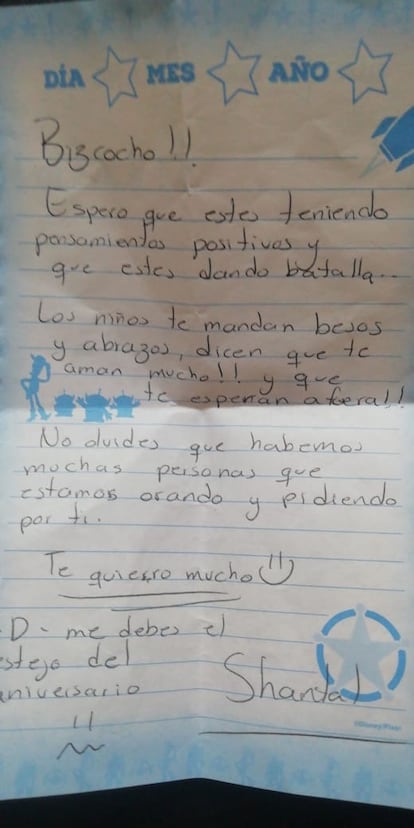 DÍA MES AÑO
Bizcocho!!
Espero que estes teniendo
pensamientos positivos y
que estes dando batalla...
Los niños te mandan besos
y abrazos, dicen que te
aman mucho!! y que
te esperan afuera!!
No olvides que habemos
muchas personas que
estamos orando y pidiendo
por ti.
Te quiero mucho
D- me debes el
estejo del
aniversario
Shantal
©Disney/Pixar